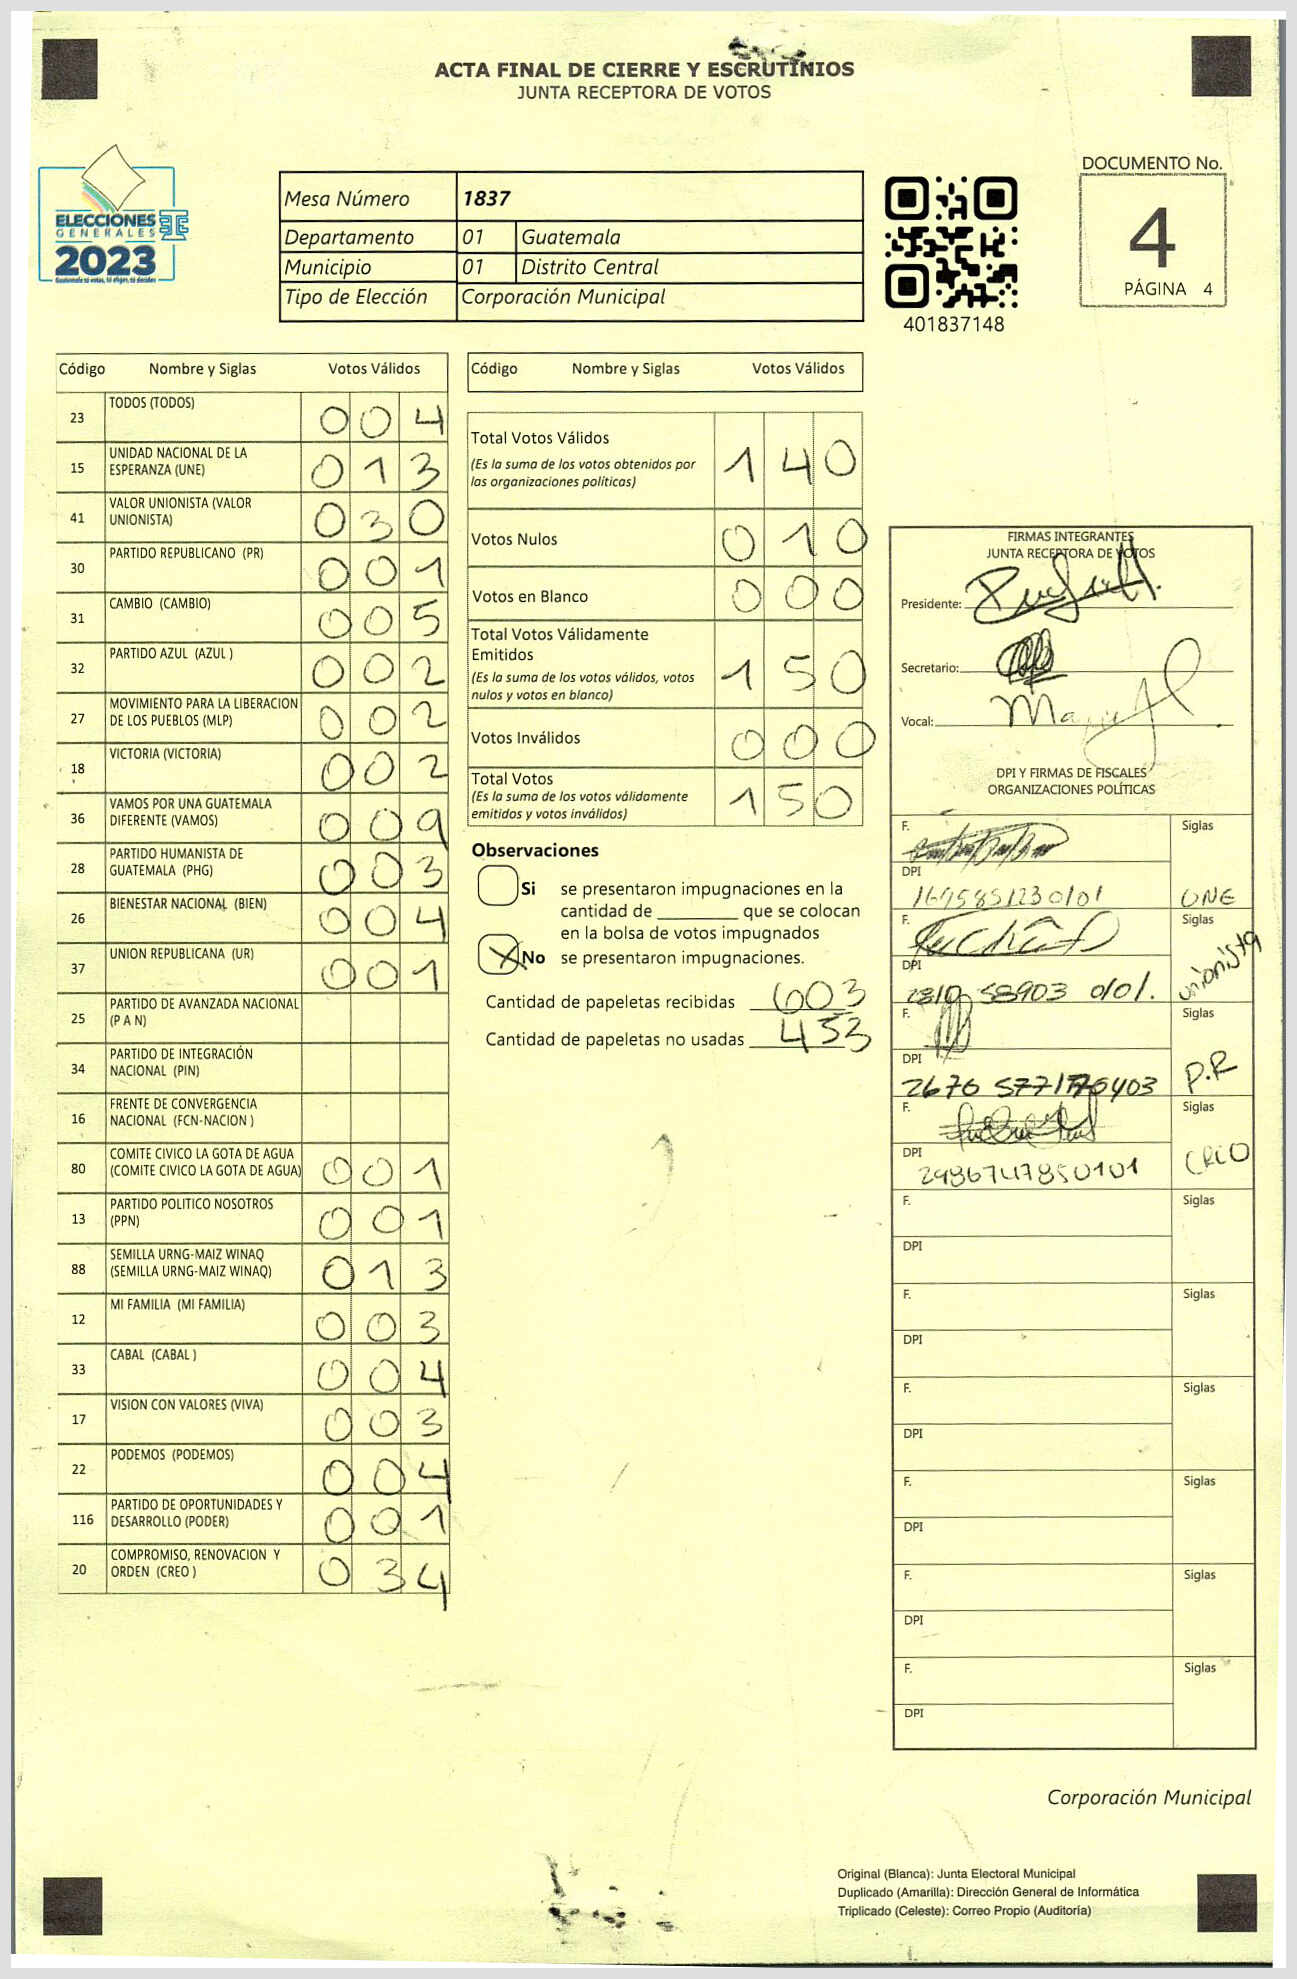 ACTA FINAL DE CIERRE Y ESCRUTINIOS
JUNTA RECEPTORA DE VOTOS
ELECCIONES
GENERALES
2023
Mesa Número 1837
Departamento 01 Guatemala
Municipio 01 Distrito Central
Tipo de Elección Corporación Municipal
401837148
DOCUMENTO No.
4
PÁGINA 4
Código Nombre y Siglas Votos Válidos
23 TODOS (TODOS) 004
15 UNIDAD NACIONAL DE LA
ESPERANZA (UNE) 013
41 VALOR UNIONISTA (VALOR
UNIONISTA) 030
30 PARTIDO REPUBLICANO (PR) 001
31 CAMBIO (CAMBIO) 005
32 PARTIDO AZUL (AZUL ) 002
27 MOVIMIENTO PARA LA LIBERACION
DE LOS PUEBLOS (MLP) 002
18 VICTORIA (VICTORIA) 002
36 VAMOS POR UNA GUATEMALA
DIFERENTE (VAMOS) 009
28 PARTIDO HUMANISTA DE
GUATEMALA (PHG) 003
26 BIENESTAR NACIONAL (BIEN) 004
37 UNION REPUBLICANA (UR) 001
25 PARTIDO DE AVANZADA NACIONAL
(P A N)
34 PARTIDO DE INTEGRACIÓN
NACIONAL (PIN)
16 FRENTE DE CONVERGENCIA
NACIONAL (FCN-NACION )
80 COMITE CIVICO LA GOTA DE AGUA
(COMITE CIVICO LA GOTA DE AGUA) 001
13 PARTIDO POLITICO NOSOTROS
(PPN) 001
88 SEMILLA URNG-MAIZ WINAQ
(SEMILLA URNG-MAIZ WINAQ) 013
12 MI FAMILIA (MI FAMILIA) 003
33 CABAL (CABAL ) 004
17 VISION CON VALORES (VIVA) 003
22 PODEMOS (PODEMOS) 004
116 PARTIDO DE OPORTUNIDADES Y
DESARROLLO (PODER) 001
20 COMPROMISO, RENOVACION Y
ORDEN (CREO ) 034
Código Nombre y Siglas Votos Válidos
Total Votos Válidos 140
(Es la suma de los votos obtenidos por
las organizaciones políticas)
Votos Nulos 010
Votos en Blanco 000
Total Votos Válidamente
Emitidos 150
(Es la suma de los votos válidos, votos
nulos y votos en blanco)
Votos Inválidos 000
Total Votos 150
(Es la suma de los votos válidamente
emitidos y votos inválidos)
Observaciones
Si se presentaron impugnaciones en la
cantidad de ________ que se colocan
en la bolsa de votos impugnados
No se presentaron impugnaciones.
Cantidad de papeletas recibidas 603
Cantidad de papeletas no usadas 453
FIRMAS INTEGRANTES
JUNTA RECEPTORA DE VOTOS
Presidente:
Secretario:
Vocal:
DPI Y FIRMAS DE FISCALES
ORGANIZACIONES POLÍTICAS
F. Siglas
DPI
UNE
F. Siglas
DPI
unionista
F. Siglas
DPI
P.R
F. Siglas
DPI
2986747850101 CREO
F. Siglas
DPI
F. Siglas
DPI
F. Siglas
DPI
F. Siglas
DPI
F. Siglas
DPI
F. Siglas
DPI
Corporación Municipal
Original (Blanca): Junta Electoral Municipal
Duplicado (Amarilla): Dirección General de Informática
Triplicado (Celeste): Correo Propio (Auditoría)